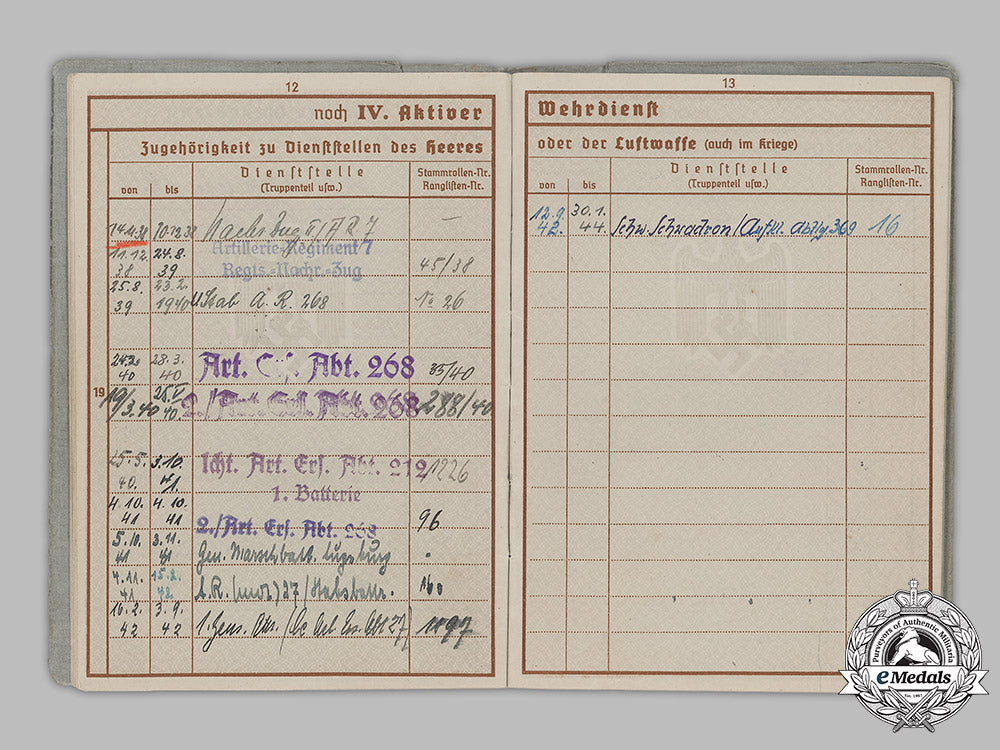 12
noch IV. Aktiver
Zugehörigkeit zu Dienststellen des Heeres
von
bis
Dienststelle
(Truppenteil usw.)
Stammrollen-Nr.
Ranglisten-Nr.
14.11.38 10.12.38 II/AR 7 —
Artillerie-Regiment 7
11.12. 24.8.
38 39 Regts.-Nachr.-Zug 45/38
25.8. 23.2.
39 1940 Stab A. R. 268 No 26
24.2. 28.3.
40 40 Art. Ers. Abt. 268 35/40
19
19/3.40 25.V. 40 2./Art. Ers. Abt. 268 288/40
25.5. 3.10. lcht. Art. Ers. Abt. 212 1226
40. 41. 1. Batterie
4.10. 4.10.
41 41 2./Art. Ers. Abt. 268 96
5.10. 3.11.
41 41 Gen. Marschbatt. Augsburg
4.11. 15.2.
41 42 A.R. (mot) 27 / Stabsbattr. 160
16.2. 3.9.
42 42 1. Gens. 27) 1197
13
Wehrdienst
oder der Luftwaffe (auch im Kriege)
von
bis
Dienststelle
(Truppenteil usw.)
Stammrollen-Nr.
Ranglisten-Nr.
12.9. 30.1.
42. 44. Schw. Schwadron/Aufkl. Abtlg 369 16
Purveyors of Authentic Militaria
eMedals